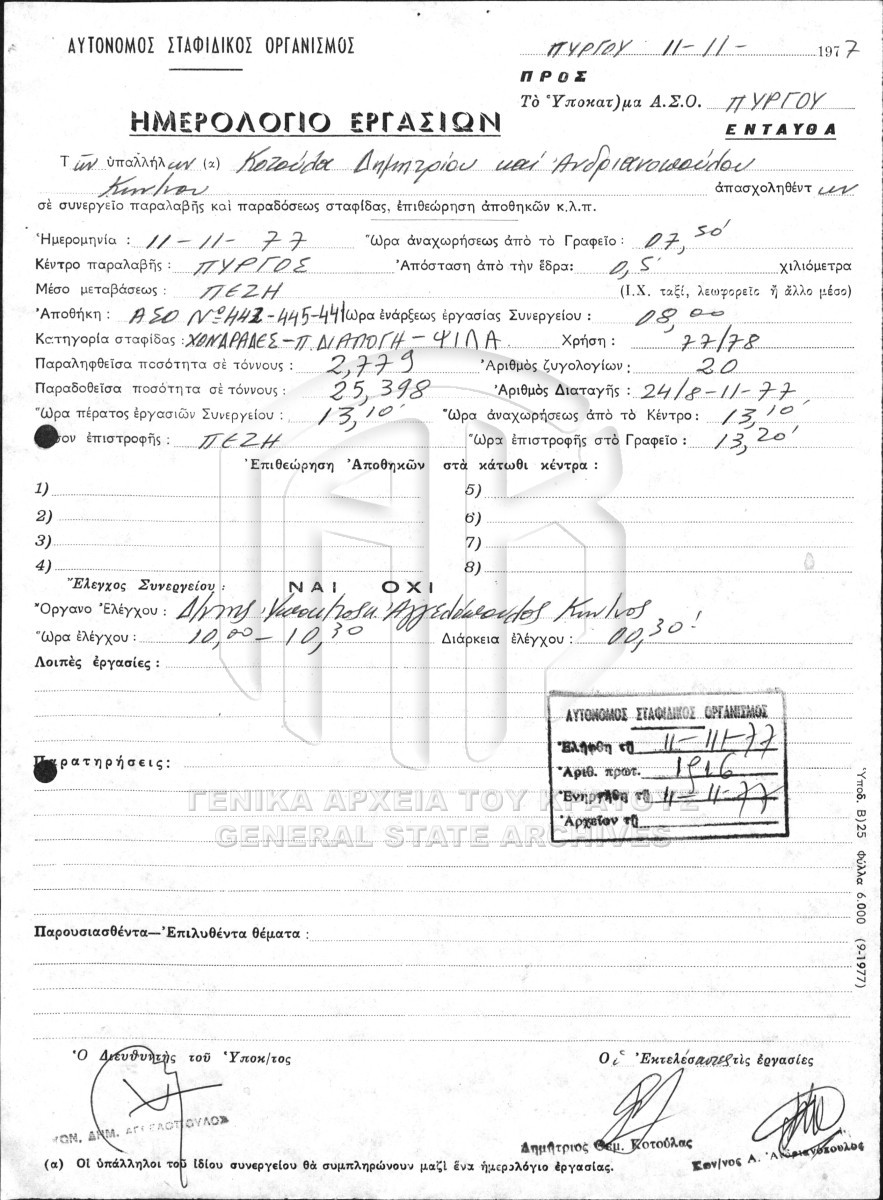 ΑΥΤΟΝΟΜΟΣ ΣΤΑΦΙΔΙΚΟΣ ΟΡΓΑΝΙΣΜΟΣ
ΠΥΡΓΟΥ 11-11- 1977
ΠΡΟΣ
Τὸ Ὑποκατ)μα Α.Σ.Ο. ΠΥΡΓΟΥ
ΗΜΕΡΟΛΟΓΙΟ ΕΡΓΑΣΙΩΝ
ΕΝΤΑΥΘΑ
Τῶν ὑπαλλήλων (α) Κοτούλα Δημητρίου καί Ἀνδριανοπούλου
Κων/νου ἀπασχοληθέντων
σὲ συνεργεῖο παραλαβῆς καὶ παραδόσεως σταφίδας, ἐπιθεώρηση ἀποθηκῶν κ.λ.π.
Ἡμερομηνία : 11-11-77 Ὥρα ἀναχωρήσεως ἀπὸ τὸ Γραφεῖο : 07,50'
Κέντρο παραλαβῆς : ΠΥΡΓΟΣ Ἀπόσταση ἀπὸ τὴν ἕδρα: 0,5 χιλιόμετρα
Μέσο μεταβάσεως : ΠΕΖΗ (Ι.Χ. ταξί, λεωφορεῖο ἤ ἄλλο μέσο)
Ἀποθήκη : ΑΣΟ Νº 442-445-441 Ὥρα ἐνάρξεως ἐργασίας Συνεργείου : 08,00
Κατηγορία σταφίδας : ΧΟΝΔΡΑΔΕΣ-Π.ΔΙΑΛΟΓΗ-ΨΙΛΑ Χρήση : 77/78
Παραληφθεῖσα ποσότητα σὲ τόννους : 2,779 Ἀριθμὸς ζυγολογίων : 20
Παραδοθεῖσα ποσότητα σὲ τόννους : 25,398 Ἀριθμὸς Διαταγῆς : 24/8-11-77
Ὥρα πέρατος ἐργασιῶν Συνεργείου : 13,10' Ὥρα ἀναχωρήσεως ἀπὸ τὸ Κέντρο : 13,10'
σον ἐπιστροφῆς : ΠΕΖΗ Ὥρα ἐπιστροφῆς στὸ Γραφεῖο : 13,20'
Ἐπιθεώρηση Ἀποθηκῶν στὰ κάτωθι κέντρα :
1) 5)
2) 6)
3) 7)
4) 8)
Ἔλεγχος Συνεργείου : ΝΑΙ ΟΧΙ
Ὄργανο Ἐλέγχου : Δ/ντης Ἀγγελόπουλος Κων/νος
Ὥρα ἐλέγχου : 10,00-10,30 Διάρκεια ἐλέγχου : 00,30'
Λοιπὲς ἐργασίες :
ΑΥΤΟΝΟΜΟΣ ΣΤΑΦΙΔΙΚΟΣ ΟΡΓΑΝΙΣΜΟΣ
Ἐλήφθη τῇ 11-11-77
Ἀριθ. πρωτ. 1916
Ἐνηργήθη τῇ 11-11-77
Ἀρχεῖον τῇ
Παρατηρήσεις :
ΓΕΝΙΚΑ ΑΡΧΕΙΑ ΤΟΥ ΚΡΑΤΟΥΣ
GENERAL STATE ARCHIVES
Ὑποδ. Β)25 Φύλλα 6.000 (9-1977)
Παρουσιασθέντα—Ἐπιλυθέντα θέματα :
Ὁ Διευθυντὴς τοῦ Ὑποκ/τος
Οἱ Ἐκτελέσαντες τὶς ἐργασίες
ΚΩΝ. ΔΗΜ. ΑΓΓΕΛΟΠΟΥΛΟΣ
Δημήτριος Θεμ. Κοτούλας
Κων/νος Α. Ἀνδριανόπουλος
(α) Οἱ ὑπάλληλοι τοῦ ἰδίου συνεργείου θὰ συμπληρώνουν μαζὶ ἕνα ἡμερολόγιο ἐργασίας.